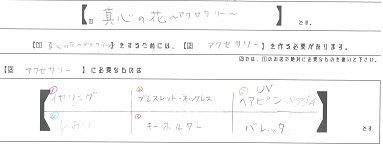 【1 真心の花~アクセサリー~ 】です。
【1 真心の花~アクセサリー~】をするためには、【2 アクセサリー 】を作る必要があります。
2では、1のお店の絶対に必要なものを書いて下さい。
【2 アクセサリー 】に必要なものは
イヤリング ブレスレット・ネックレス UV ヘアピン
しおり キーホルダー バレッタ
です